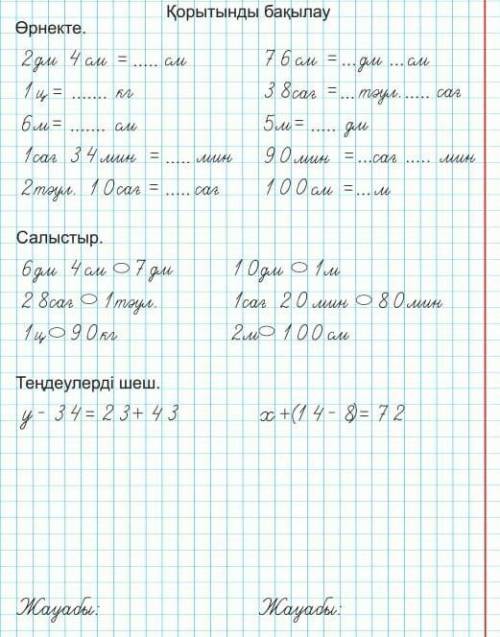 Қорытынды бақылау
Өрнекте.
2дм 4см = ..... см 76см = ...дм ...см
1ц = ....... кг 38сағ = ...тәул. ..... сағ
6м = ....... см 5м = ..... дм
1сағ 34мин = ..... мин 90мин = ...сағ ..... мин
2тәул. 10сағ = ..... сағ 100см = ... м
Салыстыр.
6дм 4см ○ 7дм 10дм ○ 1м
28сағ ○ 1тәул. 1сағ 20мин ○ 80мин
1ц ○ 90кг 2м ○ 100см
Теңдеулерді шеш.
у - 34 = 23 + 43 х + (14 - 8) = 72
Жауабы: Жауабы: